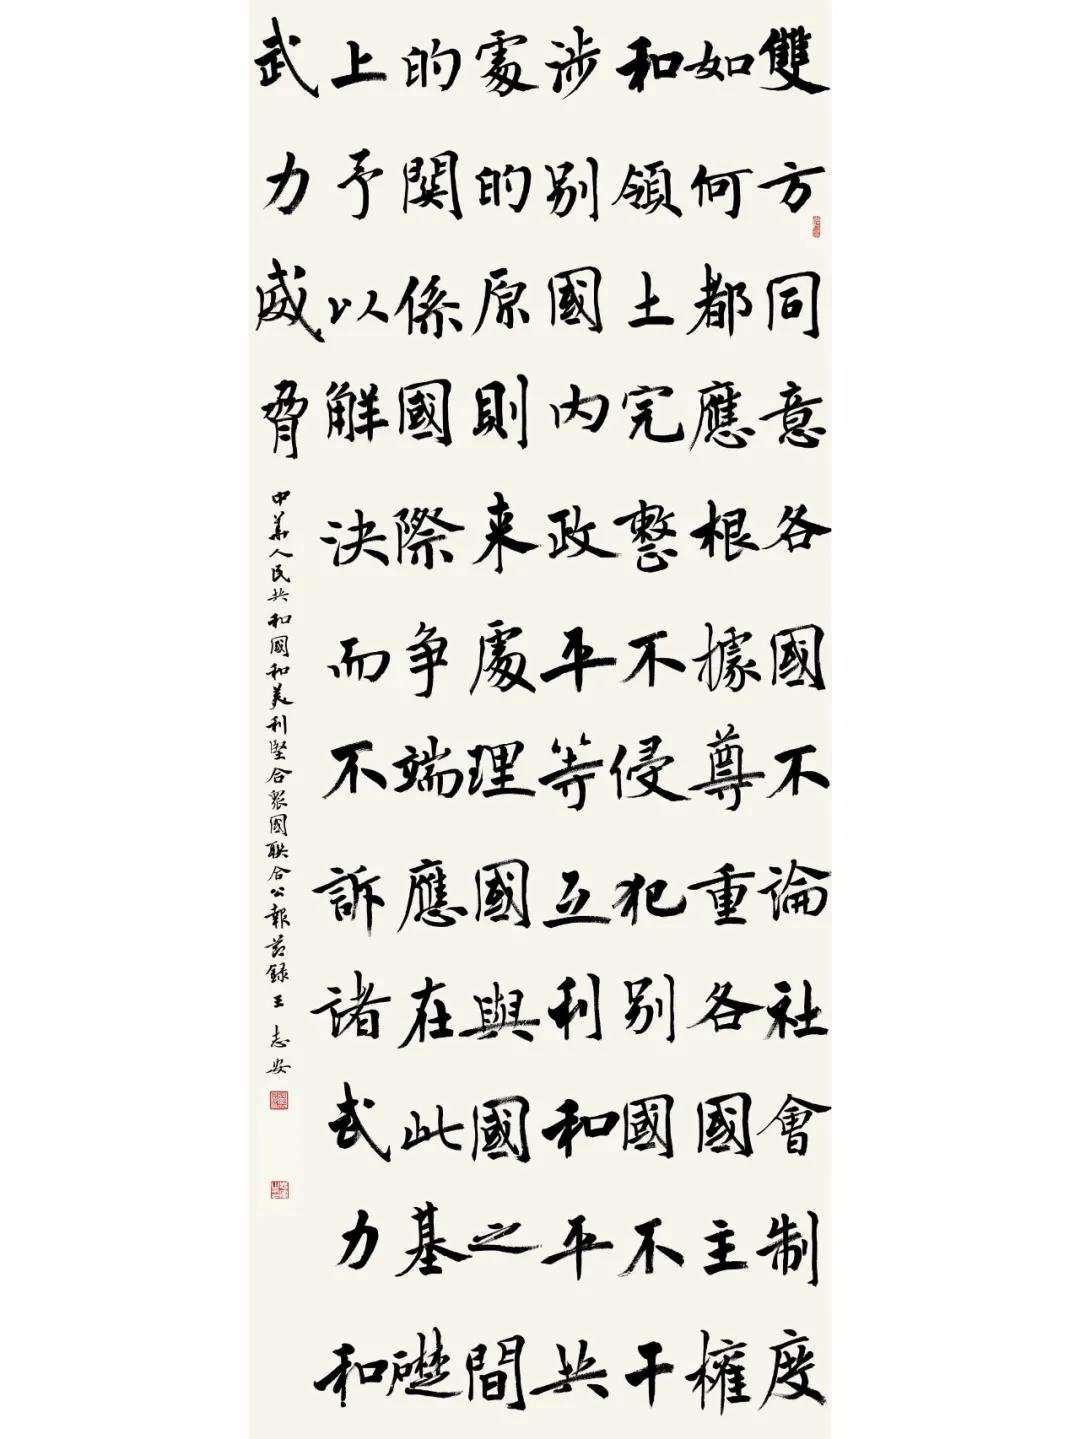 雙方同意各國不論社會制度
如何都應根據尊重各國主權
和領土完整不侵犯別國不干
涉別國內政平等互利和平共
處的原則来處理國與國之間
的關係國際争端應在此基礎
上予以解決而不訴諸武力和
武力威脅
中華人民共和國和美利堅合衆國联合公報節録王志安